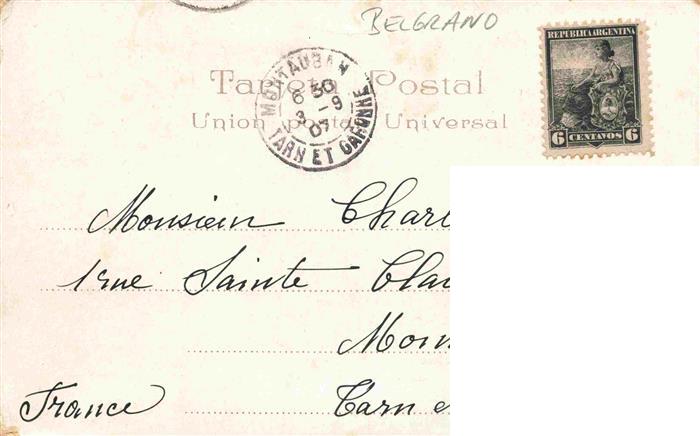 BELGRANO
REPUBLICA ARGENTINA
6 CENTAVOS 6
Tarjeta Postal
Union postal Universal
MONTAUBAN
6 30
3 - 9
07
TARN ET GARONNE
Monsieur Charl
1 rue Sainte Clai
Mon
France Tarn e